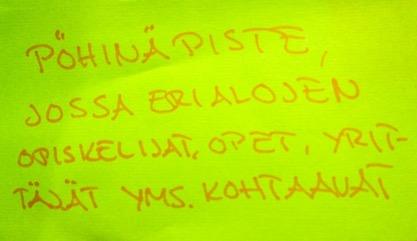 PÖHINÄPISTE,
JOSSA ERI ALOJEN
OPISKELIJAT, OPET, YRIT-
TÄJÄT YMS. KOHTAAVAT